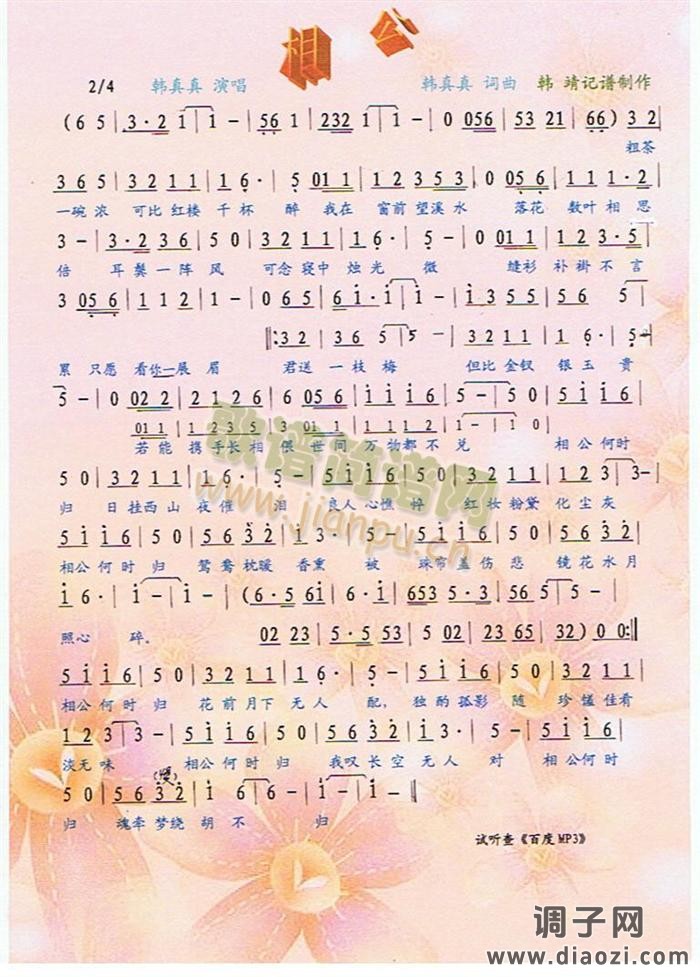 相公
2/4 韩真真 演唱 韩真真 词曲 韩 靖记谱制作
(6 5 | 3·2 1 | 1 - | 56 1 | 232 1 | 1 - | 0 056 | 53 21 | 66) | 32 |
粗茶
3 6 5 | 3 2 1 1 | 6· | 5 01 1 | 1 2 3 5 3 | 0 5 6 | 1 1 1·2 |
一碗浓 可比红楼 千杯 醉 我在 窗前望溪水 落花 数叶相思
3 - | 3·2 3 6 | 5 0 | 3 2 1 1 | 1 6· | 5 - | 0 01 1 | 1 2 3·5 |
倍 耳鬓一阵 风 可念寝中 烛光 微 缝衫 补褂不言
3 05 6 | 1 1 2 | 1 - | 0 6 5 | 6 1·1 | 1 - | 1·3 5 5 | 5 6 5 |
‖: 3 2 | 3 6 5 | 5 - | 3 2 1 1 | 1 6· |
累 只愿 看你一展 眉 君送 一枝梅 但比金钗 银玉 贵
5 - | 0 02 2 | 2 1 2 6 | 6 05 6 | 1 1 1 6 | 5 - | 5 0 | 5 1 1 6 |
01 1 | 1 2 3 5 | 3 01 1 | 1 2 1 1 | 2 - |
若能 携手长相 偎 世间 万物都不 兑 相公何时
5 0 | 3 2 1 1 | 1 6· | 5 - | 5 1 1 6 | 5 0 | 3 2 1 1 | 1 2 3 | 3 - |
归 日挂西山 夜催 泪 良人心憔 悴 红妆粉黛 化尘灰
5 1 1 6 | 5 0 | 5 6 3 2 | 2 1· | 3 - | 5 1 1 6 | 5 0 | 5 6 3 2 |
相公何时 归 鸳鸯枕暖 香熏 被 珠帘盖伤 悲 镜花水月
1 6· | 1 - | 1 - | (6·5 61 | 6· 16 | 653 5·3 | 56 5 | 5 - |
照心 碎。 02 23 | 5·5 53 | 5 02 | 23 65 | 32) 0 0 :‖
5 1 1 6 | 5 0 | 3 2 1 1 | 1 6· | 5 - | 5 1 1 6 | 5 0 | 3 2 1 1 |
相公何时 归 花前月下 无人 配， 独酌孤影 随 珍馐佳肴
1 2 3 | 3 - | 5 1 1 6 | 5 0 | 5 6 3 2 | 2 1· | 3 - | 5 1 1 6 |
淡无味 相公何时 归 我叹长空 无人 对 相公何时
(慢)
5 0 | 5 6 3 2 | 1 2 | 1 - | 1 - ‖
归 魂牵梦绕 胡不 归
试听查《百度MP3》
歌谱简谱网
www.jianpu.cn
调子网
www.diaozi.com